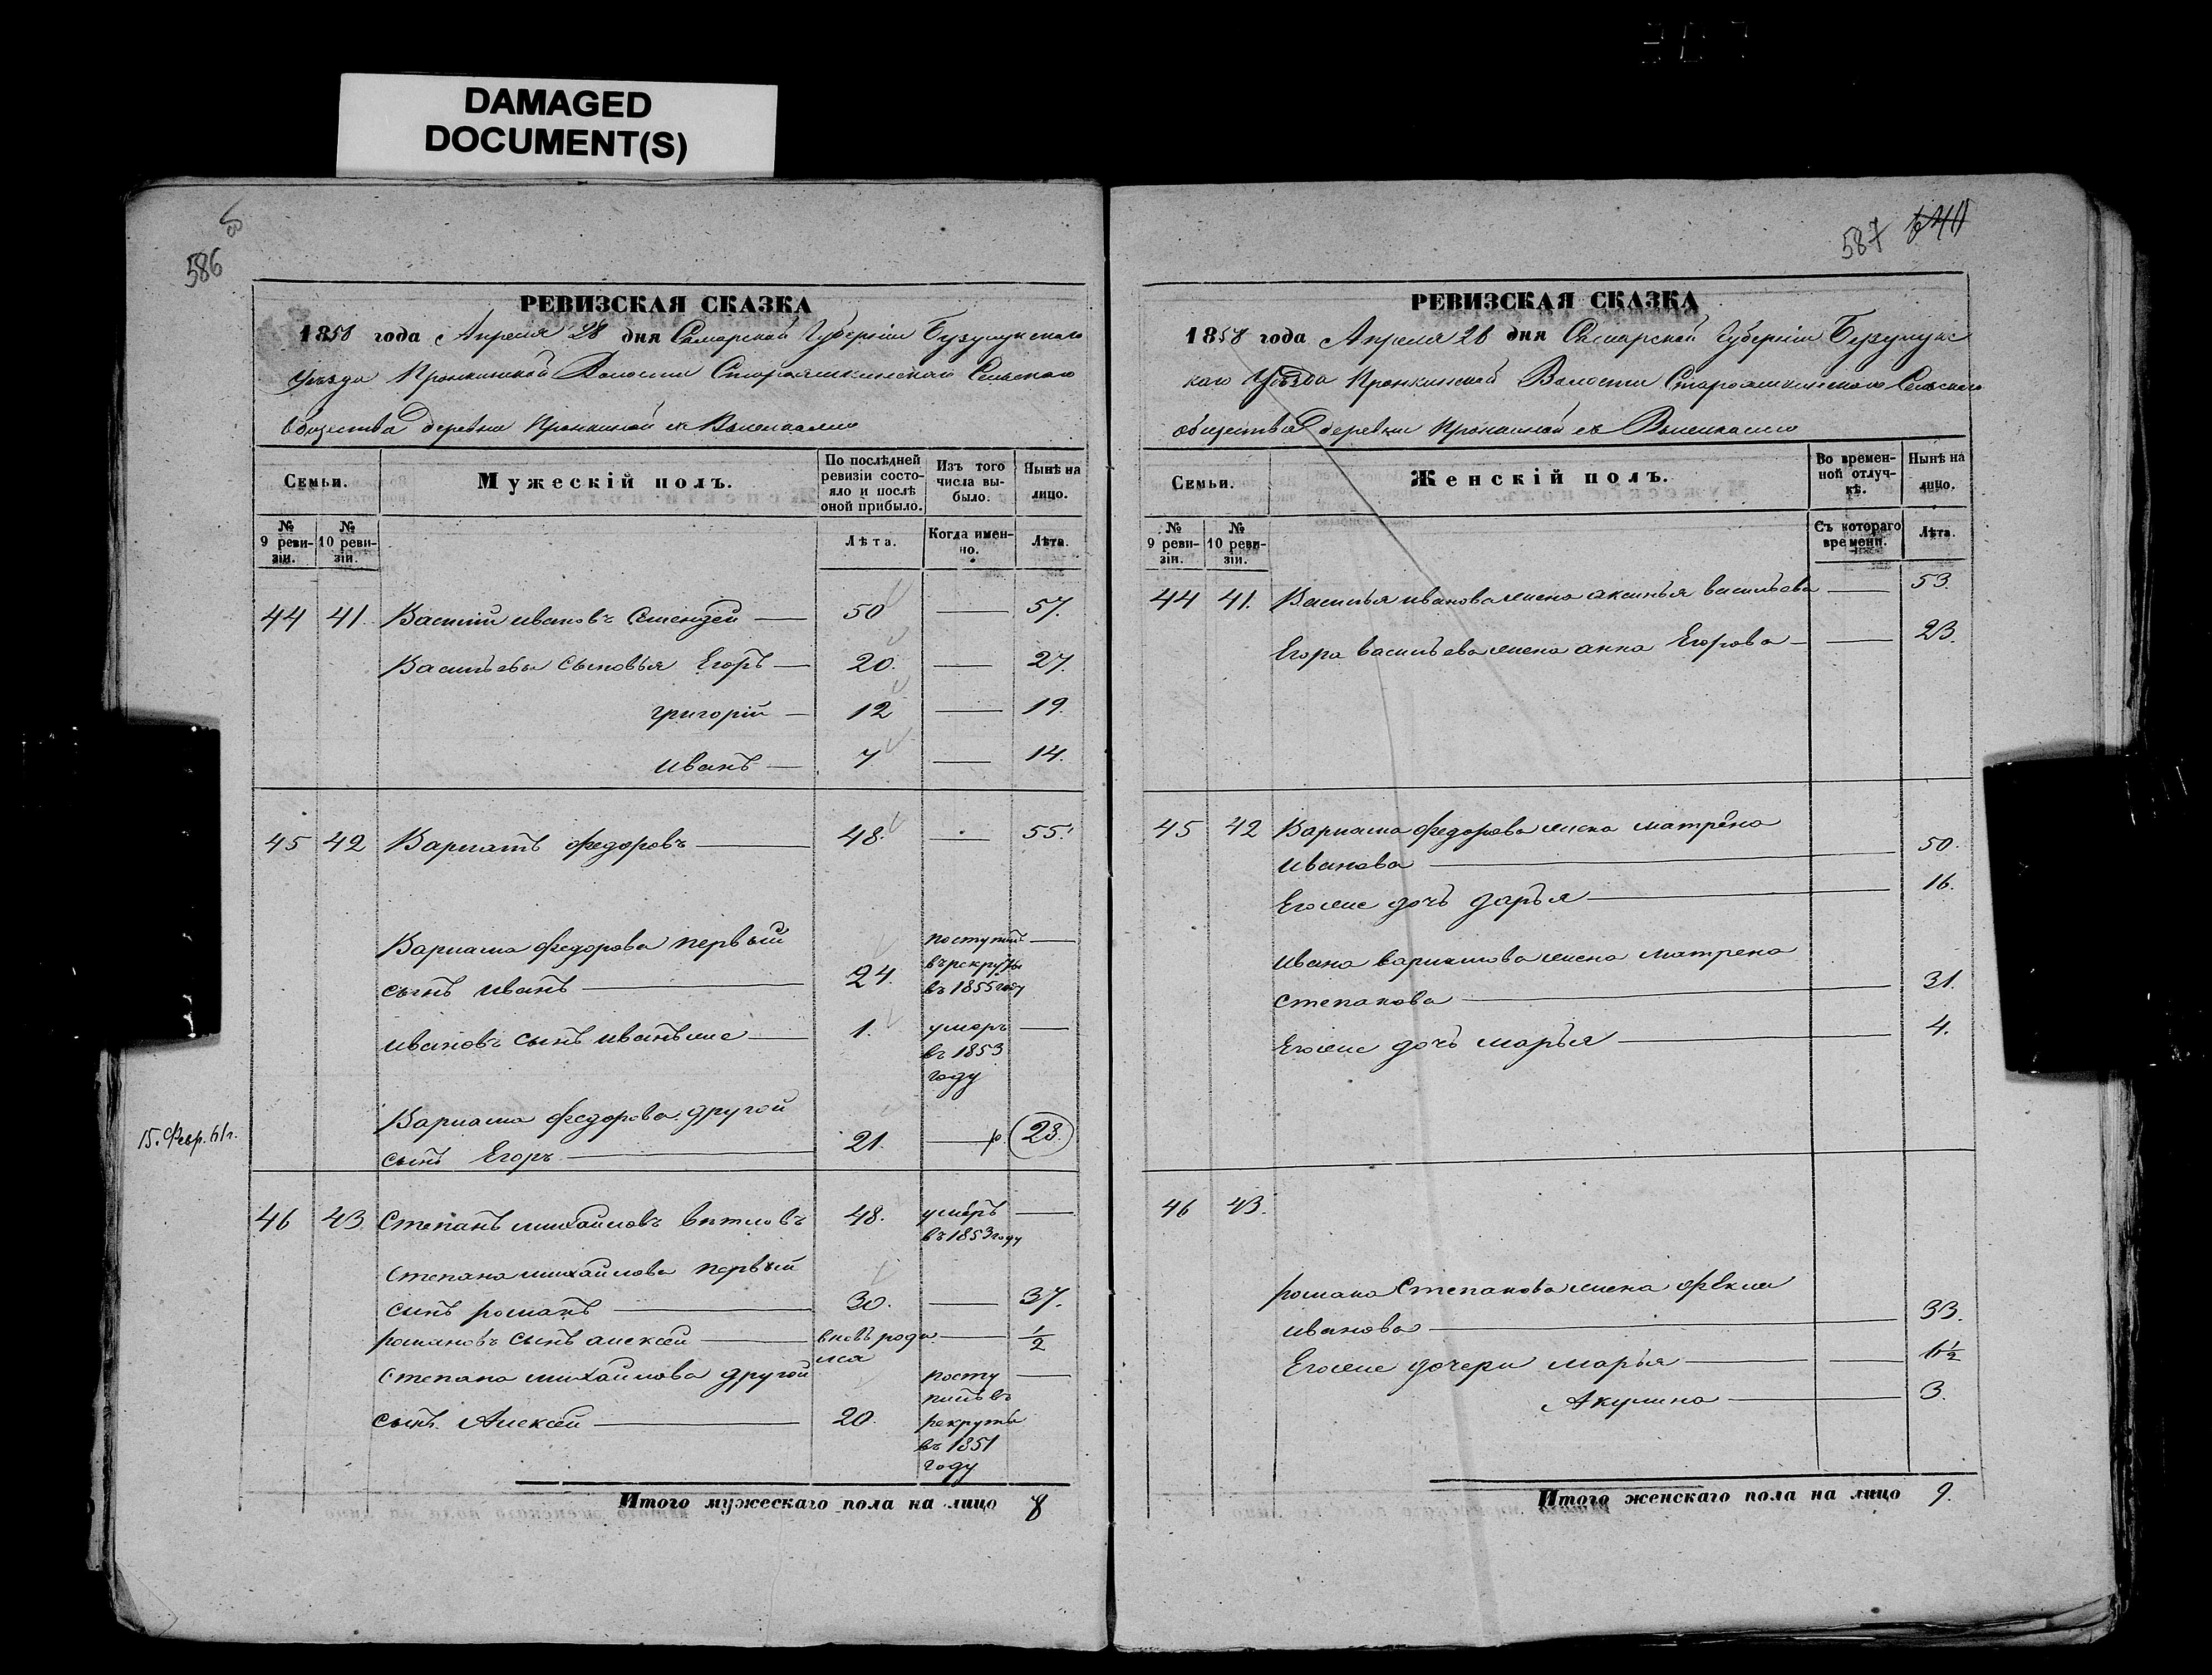 DAMAGED
DOCUMENT(S)
586
РЕВИЗСКАЯ СКАЗКА
1858 года Апреля 28 дня Самарской Губерніи Бузулукскаго
Уезда Пронкинской Волости Староашкинскаго Сельскаго
общества деревни Пронкиной
Семьи.
Мужескій полъ.
По послѣдней ревизіи состояло и послѣ оной прибыло.
Изъ того числа выбыло.
Нынѣ на лицо.
№ 9 ревизіи.
№ 10 ревизіи.
Лѣта.
Когда именно.
Лѣта.
44 41. Василій Ивановъ 50 57.
Васильевы сыновья Егоръ 20. 27.
григорій 12 19.
иванъ 7 14.
45 42 федоровъ 48. 55.
федорова первый поступилъ
сынъ иванъ 24. въ рекруты
въ 1855 году
ивановъ сынъ иванъ же 1. умеръ
въ 1853
году
федорова другой
15. Февр. 61 г. сынъ Егоръ 21. 28.
46 43. Степанъ михайловъ 48. умеръ
въ 1853 году
Степана михайлова первый
сынъ романъ 30. 37.
романовъ сынъ алексей вновь роди 1/2
лся
Степана михайлова другой посту
пилъ въ
сынъ Алексей 20. рекруты
въ 1851
году
Итого мужескаго пола на лицо 8
587 640
РЕВИЗСКАЯ СКАЗКА
1858 года Апреля 28 дня Самарской Губерніи Бузулукс
каго Уезда Пронкинской Волости Староашкинскаго Сельскаго
общества деревни Пронкиной
Семьи.
Женскій полъ.
Во временной отлучкѣ.
Нынѣ на лицо.
№ 9 ревизіи.
№ 10 ревизіи.
Съ котораго времени.
Лѣта.
44 41. Василья иванова жена аксинья васильева 53
Егора васильева жена анна Егорова 23.
45 42 федорова жена матрена
иванова 50.
Его же дочь дарья 16.
ивана жена матрена
степанова 31.
Его же дочь марья 4.
46 43.
романа Степанова жена фекла
иванова 33.
Его же дочери марья
Акулина 3.
Итого женскаго пола на лицо 9.